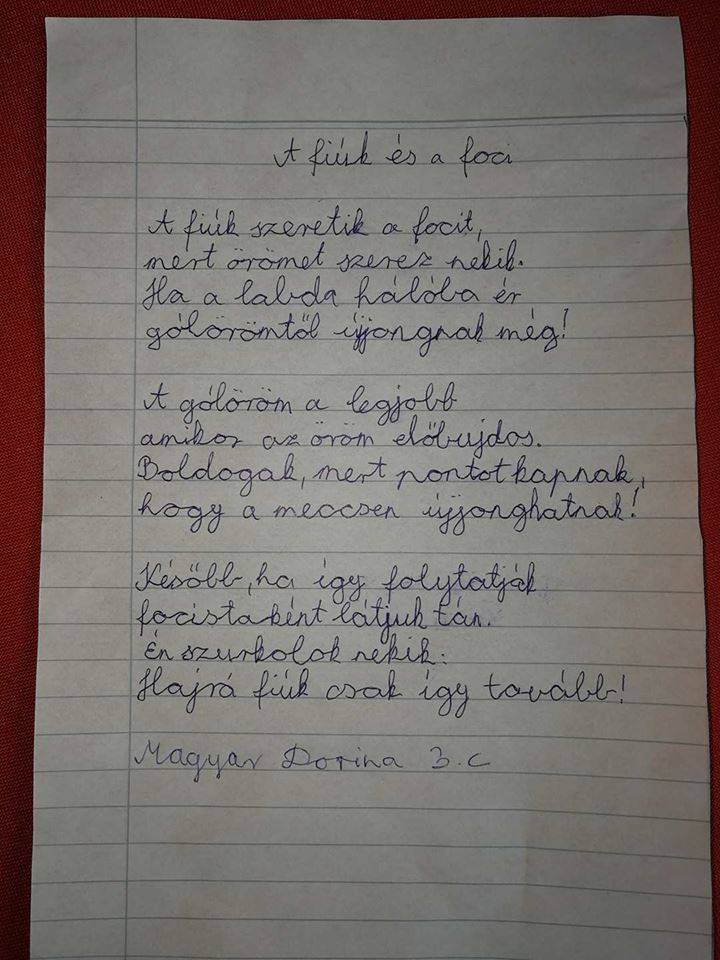 A fiúk és a foci
A fiúk szeretik a focit,
mert örömet szerez nekik.
Ha a labda hálóba ér
gólörömtől újjongnak még!
A gólöröm a legjobb
amikor az öröm előbujdos.
Boldogak, mert pontot kapnak,
hogy a meccsen újjonghatnak!
Később, ha így folytatják
focistaként látjuk tán.
Én szurkolok nekik:
Hajrá fiúk csak így tovább!
Magyar Dorina 3.c